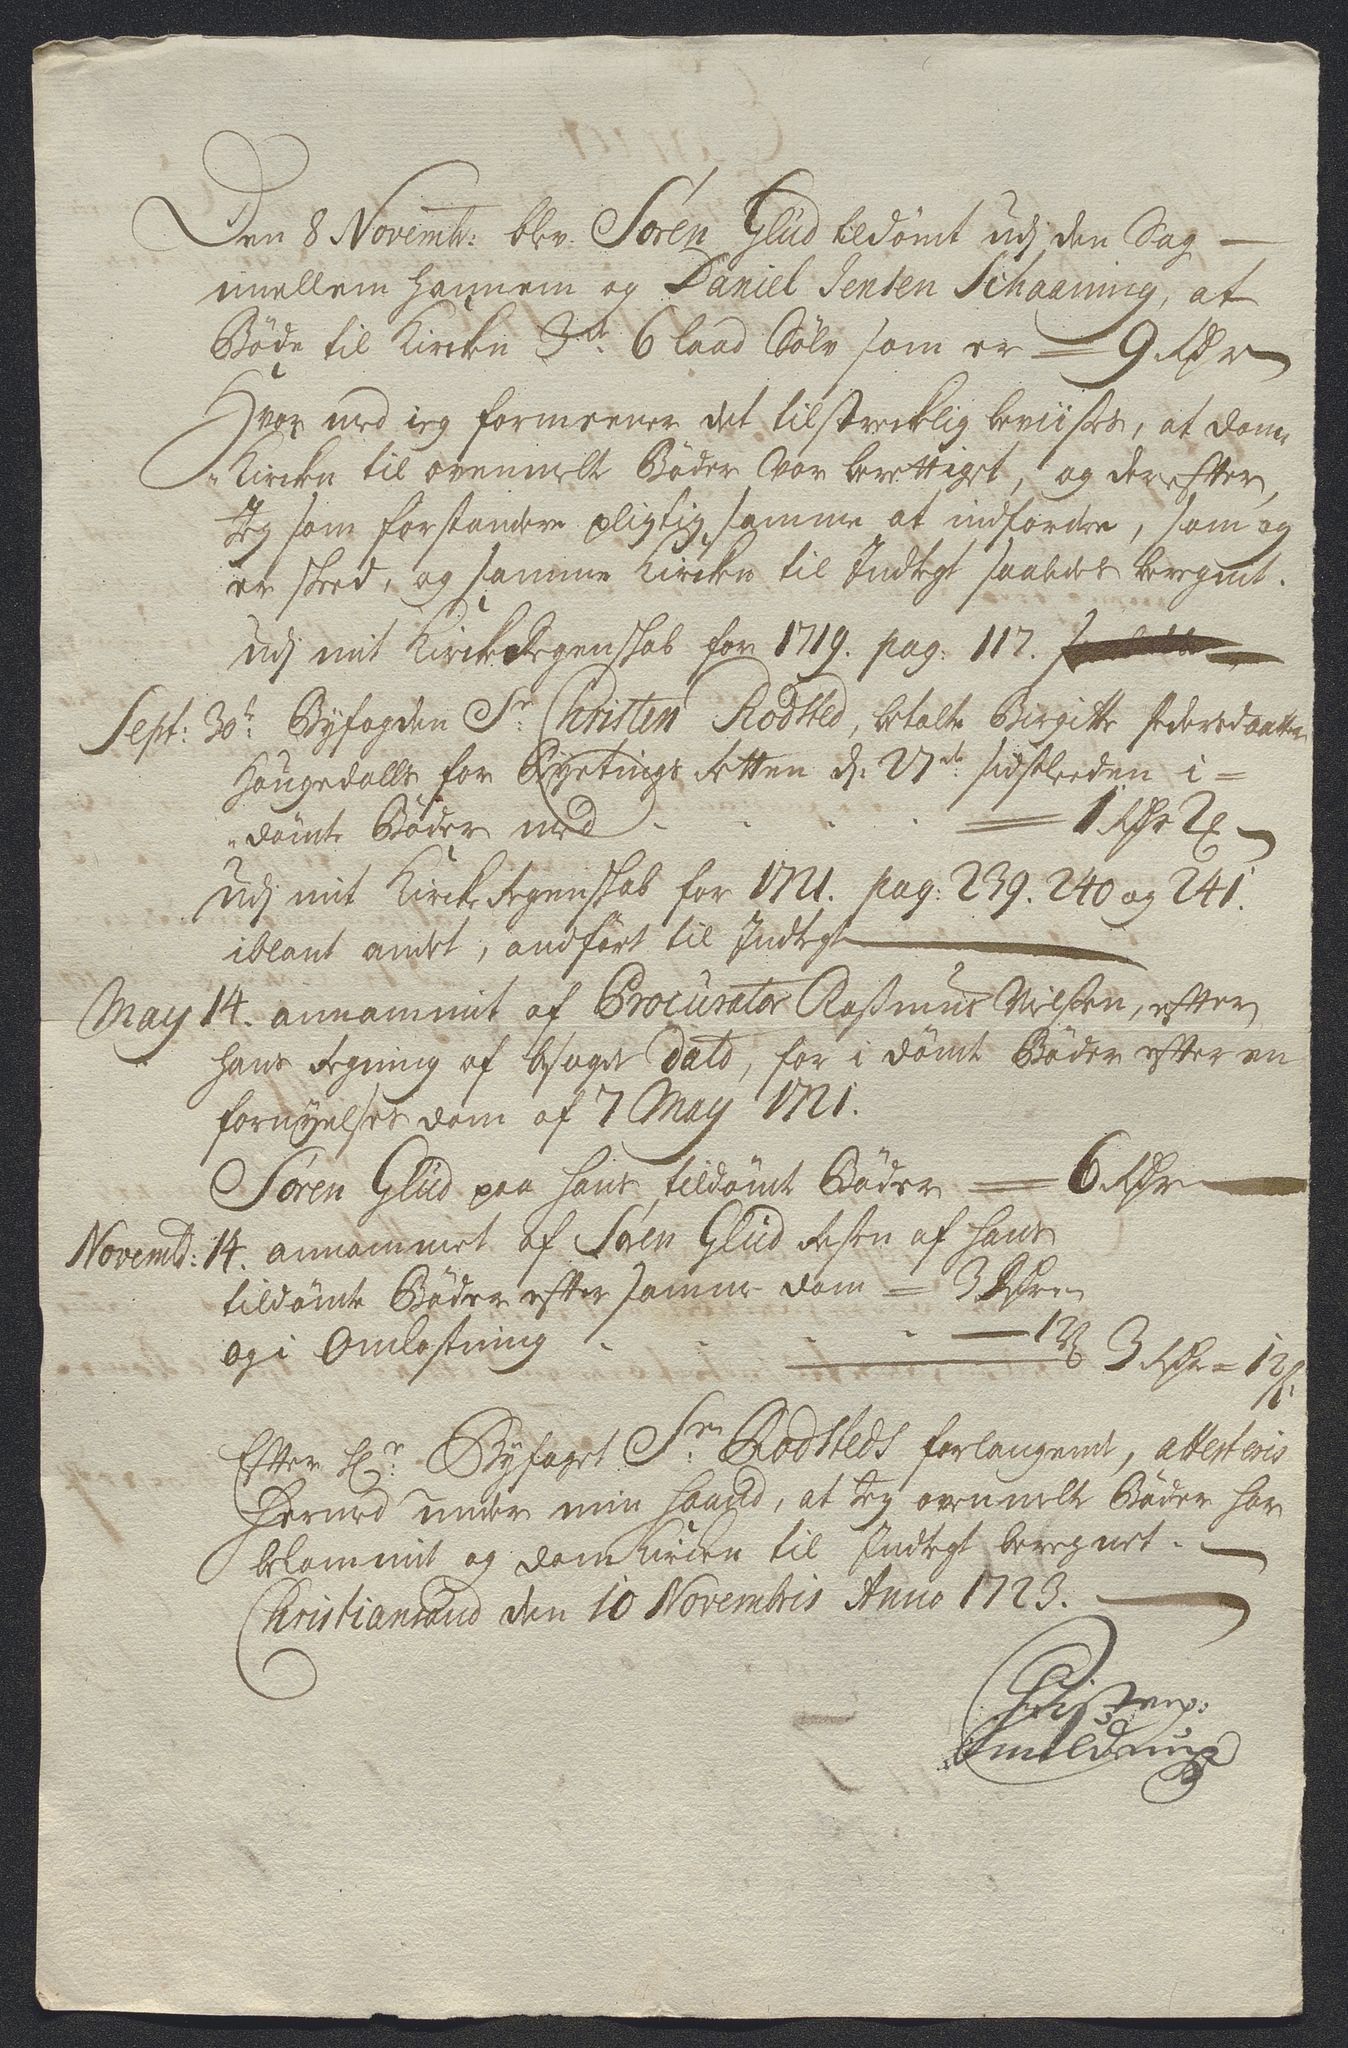 Den 8 Novembr: blev Sören Glüd tildömt udj den Sag
imellem hannem og Daniel Jensen Schaaning, at
Böde til Kircken 3de 6 laad Sölv som er 9 Rdr
Hvor med ieg formeener det tilstrecklig beviises, at dom-
Kircken til ovenmelte Böder var berettiget, og derefter,
Jeg som forstandere pligtig samme at indfordre, som og
er skeed, og samme Kircken til Indtegt saaledes beregnit.
Udj mit Kirche Regenskab for 1719. pag: 117.
Sept: 30te Byfogden Sr Christen Rodsted, betalte Birgitte Pedersdaatter
Haugedalls for Byetings Retten d: 27de sidstleeden i-
dömte Böder med 1 Rdr 2
Udj mit Kirche Regenskab for 1721. pag: 239. 240 og 241.
iblant andet, andfört til Indtegt
May 14. annammit af Procurator Rasmus Nielsen, efter
hans Regning af bsagde Dato, for i dömte Böder efter en
fornyelses dom af 7 May 1721.
Sören Glüd paa hans tildömte Böder 6 Rdr
Novembr: 14. annammet af Sören Glüd Resten af hans
tildömte Böder efter samme dom 3 Rdr
og i Omkostning 12ß 3 Rdr 12ß.
Efter Hr. Byfoget Sr. Rodsteds forlangende, attesteris
Hermed under min Haand, at Jeg ovenmelte Böder har
bekommit og domKircken til Indtegt beregnet.
Christiansand den 10 Novembris Anno 1723.